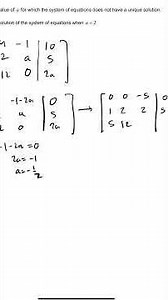 value of a for which the system of equations does not have a unique solution.
solution of the system of equations when a = 2
-1 | 10
2 a | 5
12 0 | 2a
-1-2a | 0
a | 5
0 | 2a
→ [ 0 0 -5 | 0
1 2 2 | 5
5 12
-1-2a=0
2a=-1
a=-1/2